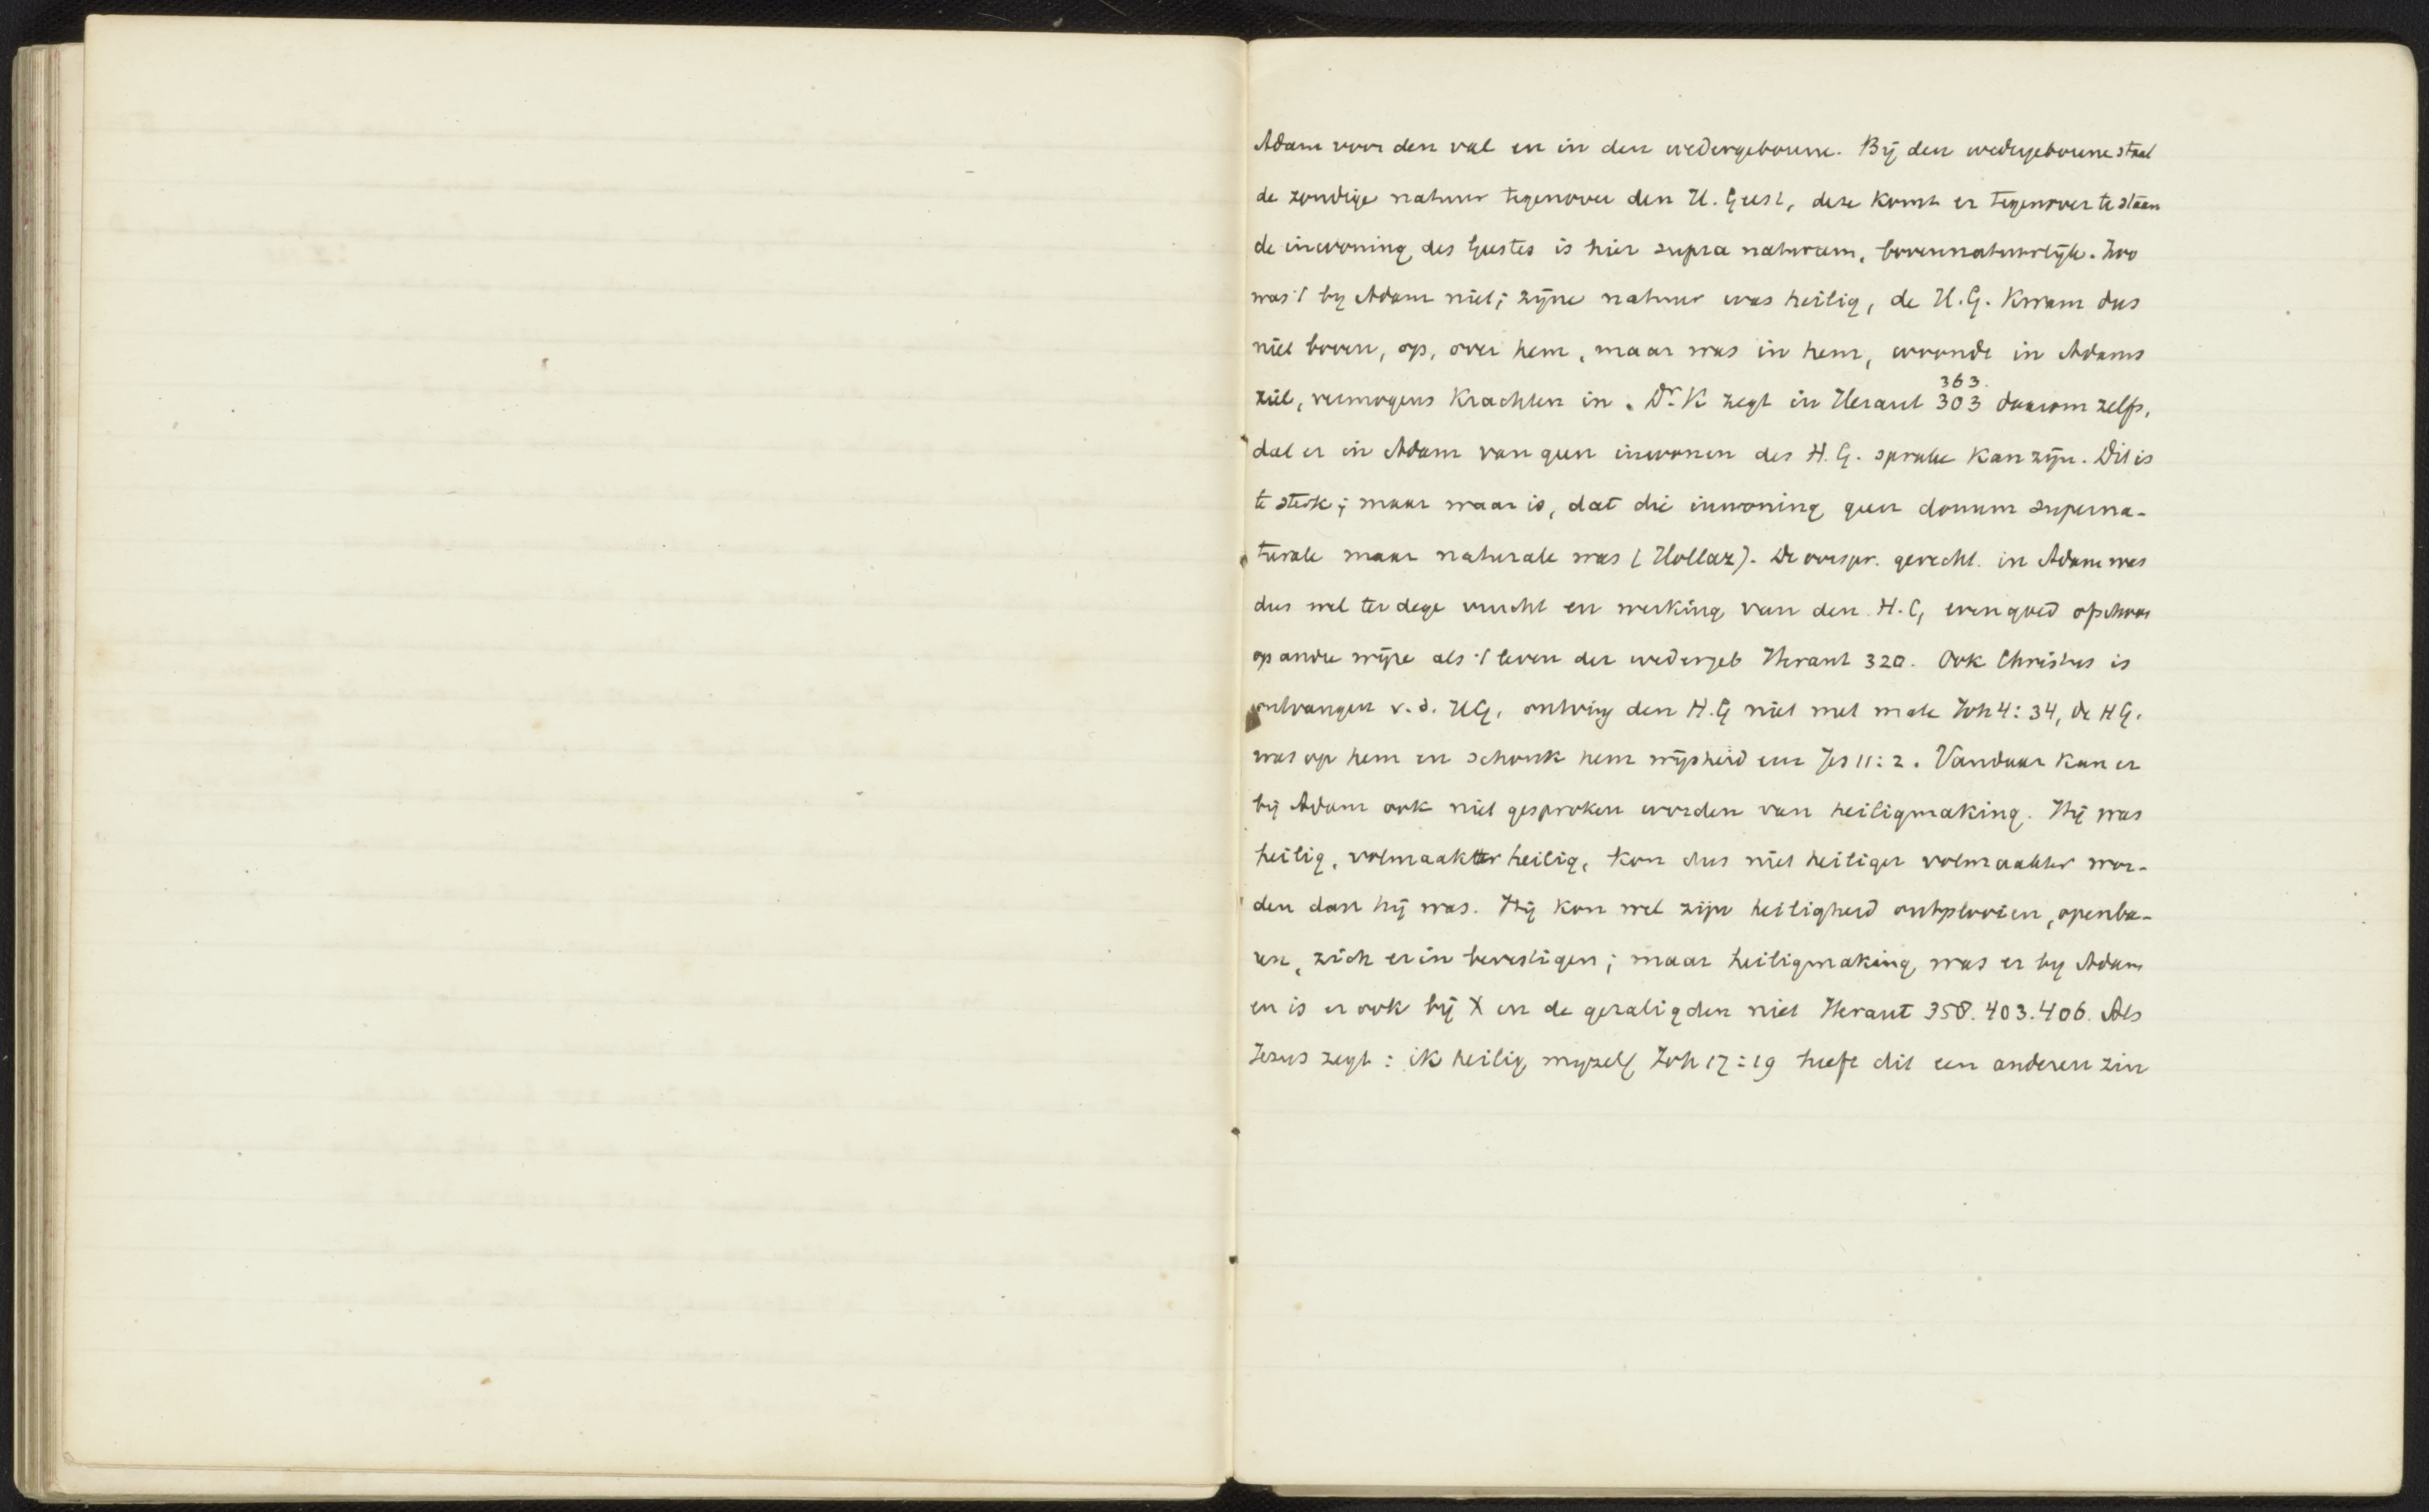 Adam voor den val en in den wedergeborene. Bij den wedergeborene staat
de zondige natuur tegenover den H. Geest, deze komt er tegenover te staan
de inwoning des Geestes is hier supra naturam, bovennatuurlijk. Zoo
was 't by Adam niet; zijne natuur was heilig, de H.G. kwam dus
niet boven, op, over hem, maar was in hem, woonde in Adams
ziel, vermogens krachten in. Dr. K zegt in Heraut 303 daarom zelfs,
363.
dat er in Adam van geen inwonen des H.G. sprake kan zijn. Dit is
te sterk; maar waar is, dat die inwoning geen donum superna-
turale maar naturale was (Hollaz). De oorspr. gerecht. in Adam was
dus wel ter dege vrucht en werking van den H.G, evengoed ofschoon
op andre wijze als 't leven der wedergeb Heraut 320. Ook Christus is
ontvangen v.d. HG, ontving den H.G niet met mate Joh 4:34, de HG.
was op hem en schonk hem wijsheid enz Jes 11:2. Vandaar kan er
bij Adam ook niet gesproken worden van heiligmaking. Hij was
heilig, volmaakt heilig, kon dus niet heiliger volmaakter wor-
den dan hij was. Hij kon wel zijn heiligheid ontplooien, openba-
ren, zich erin bevestigen; maar heiligmaking was er by Adam
en is er ook bij X en de gezaligden niet Heraut 358. 403. 406. Als
Jezus zegt: ik heilig myzelf Joh 17:19 heeft dit een anderen zin